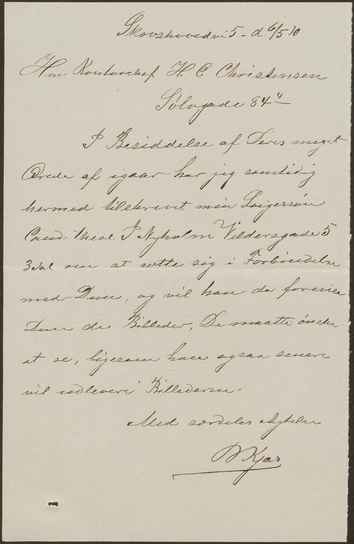 Skovshovedvej 5 - d. 6/5 10
Herr Kontorchef H C Christensen
Sølvgade 84 4
I Besiddelse af Deres meget
Ærede af igaar har jeg samtidig
hermed tilskrevet min Svigersøn
Cand. theol. P. Nyholm Vildersgade 5
3 Sal om at sætte sig i Forbindelse
med Dem, og vil han da forevise
Dem de Billeder, De maatte ønske
at se, ligesom han ogsaa senere
vil udlevere Billederne.
Med særdeles Agtelse
Kjær